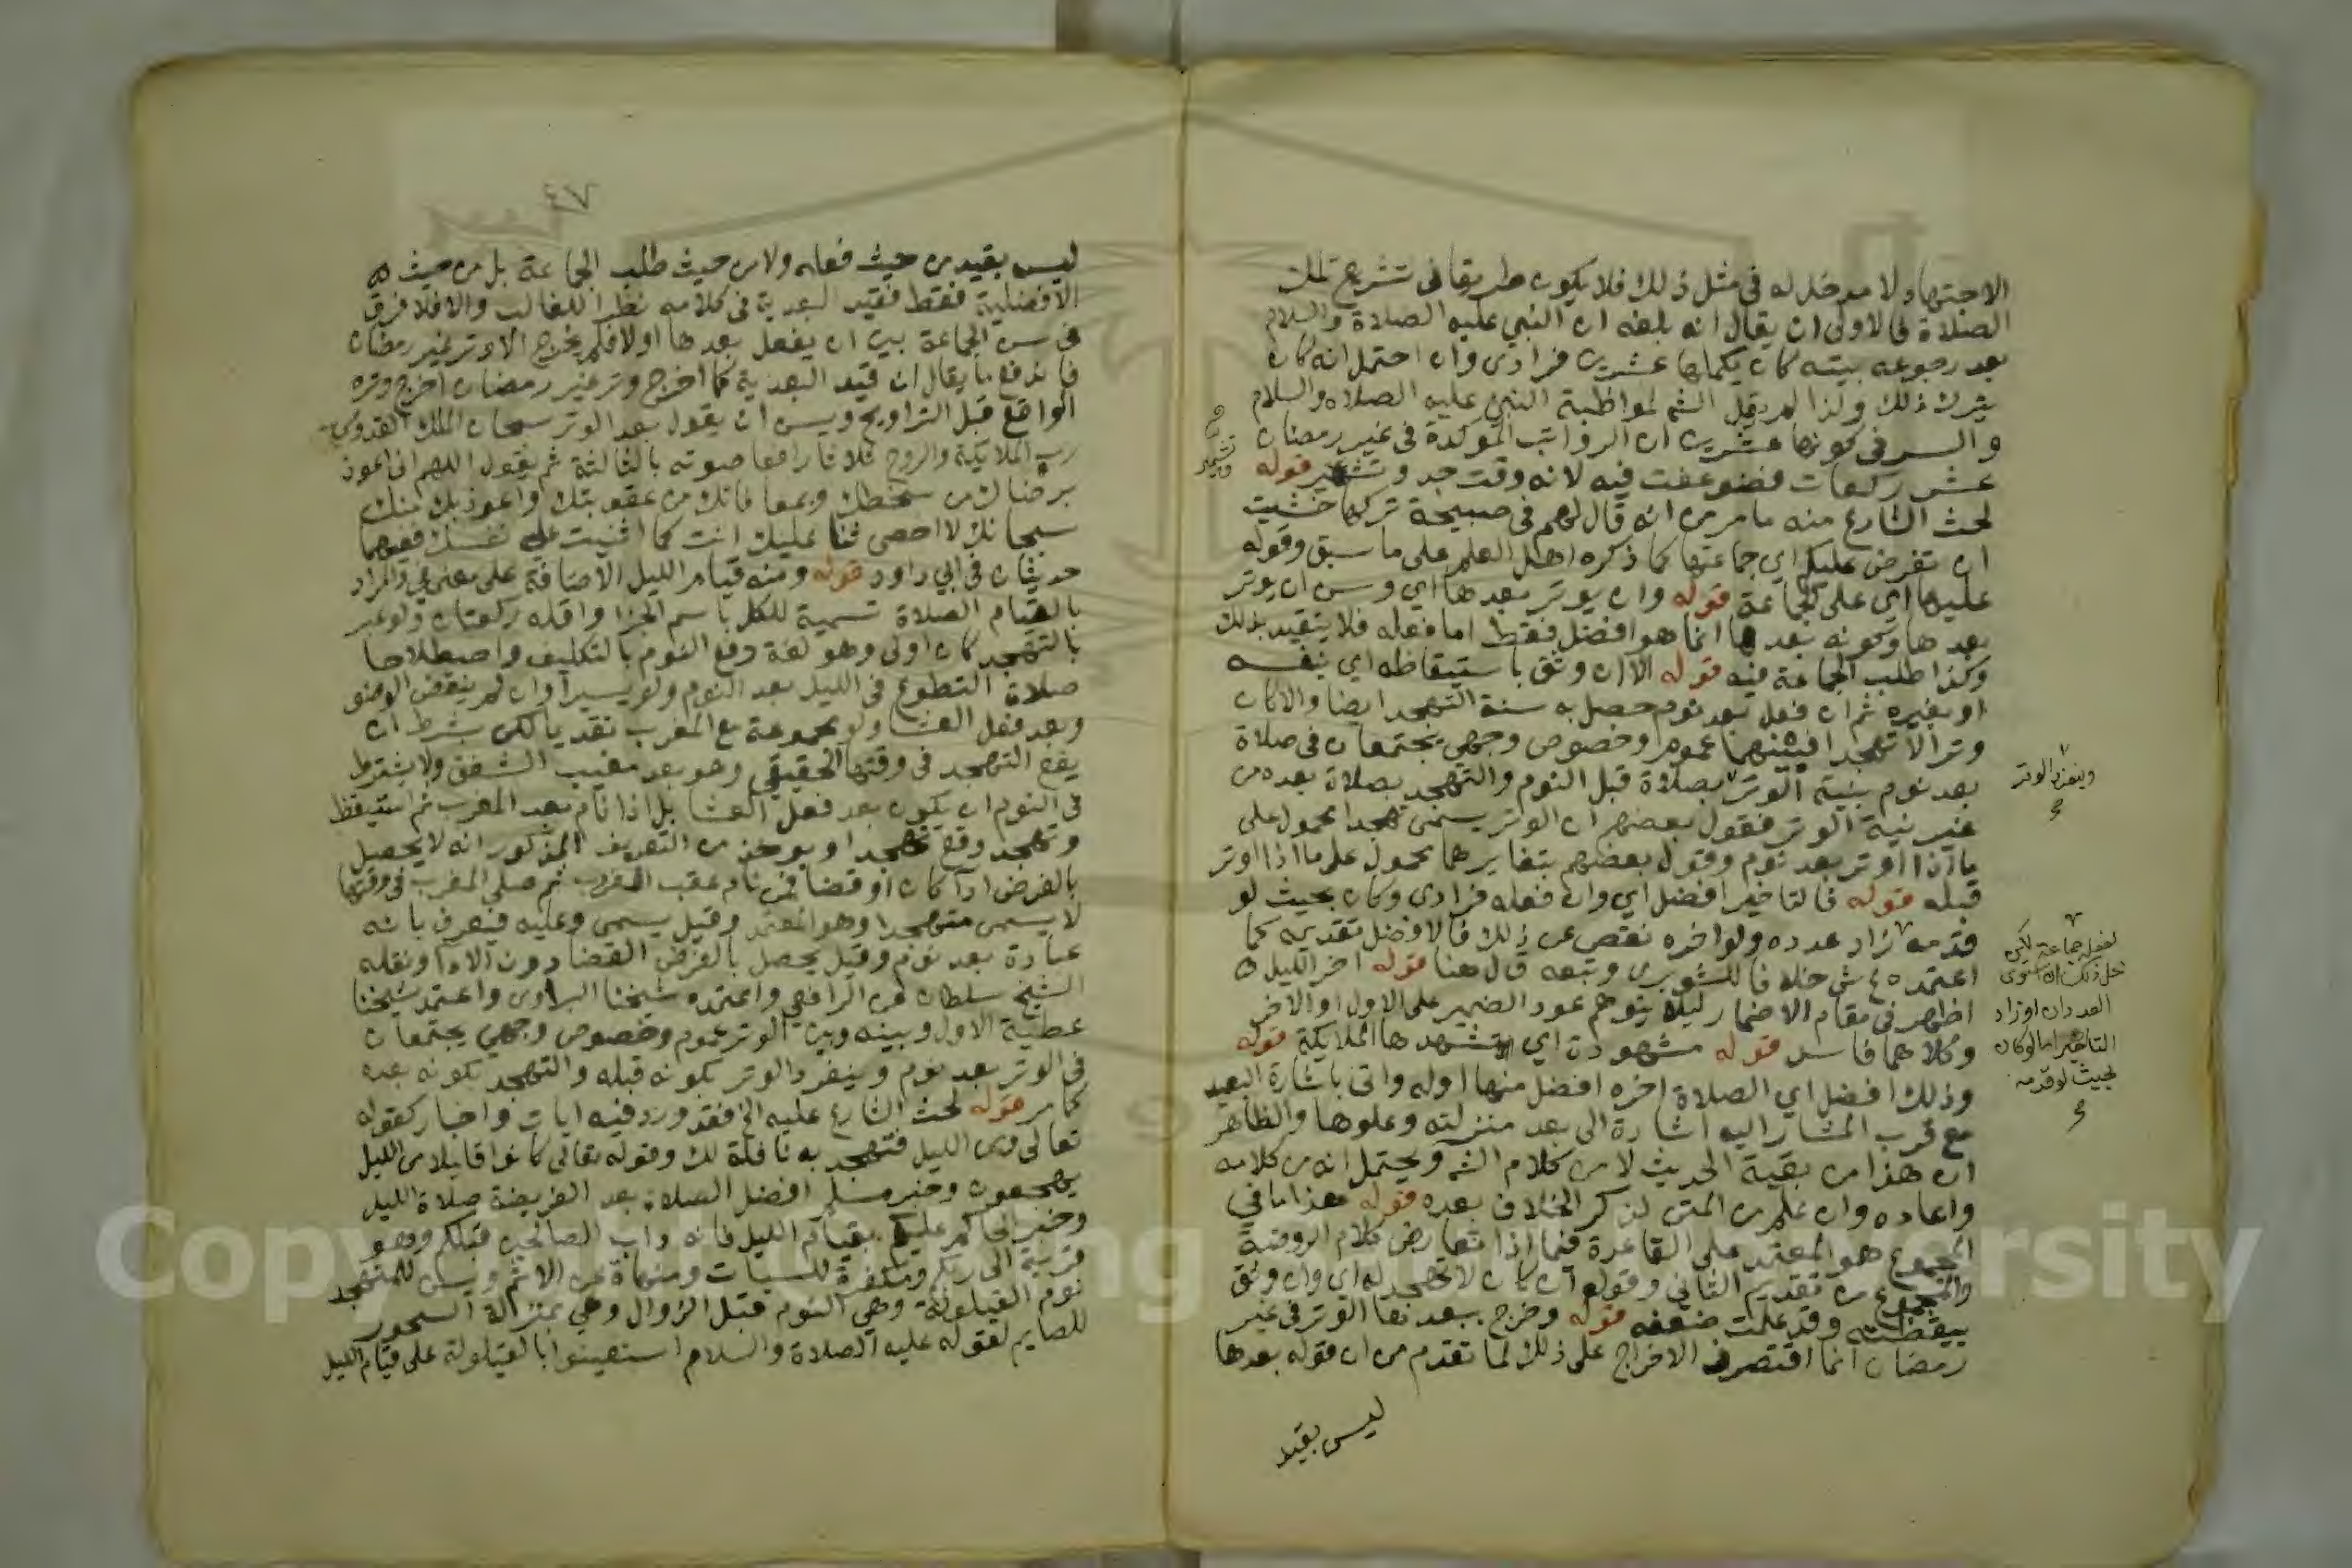 الاجتهاد ولا مدخل له في مثل ذلك فلا يكون طريقا في تشريع تلك
الصلاة فالاولى ان يقال انه بلغه ان النبي عليه الصلاة والسلام
بعد رجوعه بيته كان يكملها عشرين فرادى وان احتمل انه كان
يترك ذلك ولذا لم يقل الشم لمواظبة النبي عليه الصلاه والسلام
والسر في كونها عشرين ان الرواتب المؤكدة في غير رمضان
عشر ركعات فضوعفت فيه لانه وقت جد وتشمير قوله
لحث الشارع منه ما مر من انه قال لهم في صبيحة تركها خشيت
ان تفرض عليكم اي جماعتها كما ذكره اهل العلم على ما سبق وقوله
عليها اي على الجماعة قوله وان يوتر بعدها اي وسن ان يوتر
بعدها وكونه بعدها انما هو افضل فقط اما فعله فلا يتقيد بذلك
وكذا طلب الجماعة فيه قوله الا ان وثق باستيقاظه اي بنفسه
او بغيره ثم ان فعل بعد نوم حصل به سنة التهجد ايضا والا كان
وترا لا تهجدا فبينهما عموم وخصوص وجهي يجتمعان في صلاة
بعد نوم بنية الوتر بصلاة قبل النوم والتهجد بصلاة بعده من
غير نية الوتر فقول بعضهم ان الوتر يسمى تهجدا محمول على
ما اذا اوتر بعد نوم وقول بعضهم بتغايرهما محمول على ما اذا اوتر
قبله قوله فالتاخير افضل اي وان فعله فرادى وكان بحيث لو
قدمه زاد عدده ولو اخره نقص عن ذلك فالافضل تقديمه كما
اعتمده ع ش خلافا للشوبري وتبعه ق ل هنا قوله اخر الليل
اظهر في مقام الاضمار ليلا يتوهم عود الضمير على الاول او الاخر
وكلاهما فاسد قوله مشهودة اي تشهدها الملايكة قوله
وذلك افضل اي الصلاة اخره افضل منها اوله واتى باشارة البعيد
مع قرب المشار اليه اشارة الى بعد منزلته وعلوها والظاهر
ان هذا من بقية الحديث لا من كلام الشم ويحتمل انه من كلامه
واعاده وان علم من المتن لذكر الخلاف بعده قوله هذا ما في
المجموع هو المعتمد على القاعدة فيما اذا تعارض كلام الروضة
والمجموع من تقديم الثاني وقوله ان كان لا تهجد له اي وان وثق
بيقظته وقد علمت ضعفه قوله وخرج ببعدها الوتر في غير
رمضان انما اقتصر في الاخراج على ذلك لما تقدم من ان قوله بعدها
ليس بقيد
وتشمير
وينفرد الوتر
العدد ان او زاد
التاخير اما لو كان
بحيث لو قدمه
٤٧
ليس بقيد من حيث فعله ولا من حيث طلب الجماعة بل من حيث
الافضلية فقط فقيد البعدية في كلامه نظرا للغالب والا فلا فرق
في سن الجماعة بين ان يفعل بعدها او لا فلم يخرج الا وتر غير رمضان
فاندفع ما يقال ان قيد البعدية كما اخرج وتر غير رمضان اخرج وتره
الواقع قبل التراويح ويسن ان يقول بعد الوتر سبحان الملك القدوس
رب الملايكة والروح ثلاثا رافعا صوته بالثالثة ثم يقول اللهم اني اعوذ
برضاك من سخطك وبمعافاتك من عقوبتك واعوذ بك منك
سبحانك لا احصي ثنا عليك انت كما اثنيت على نفسك ففيهما
حديثان في ابي داود قوله ومنه قيام الليل الاضافة على معنى في والمراد
بالقيام الصلاة تسمية للكل باسم الجزا واقله ركعتان ولو عبر
بالتهجد كان اولى وهو لغة دفع النوم بالتكليف واصطلاحا
صلاة التطوع في الليل بعد النوم ولو يسيرا وان لم ينقض الوضو
وبعد فعل العشا ولو مجموعة مع المغرب تقديما لكن بشرط ان
يقع التهجد في وقتها الحقيقي وهو بعد مغيب الشفق ولا يشترط
في النوم ان يكون بعد فعل العشا بل اذا نام بعد المغرب ثم استيقظ
وتهجد وقع تهجدا ويوخذ من التعريف المذكور انه لا يحصل
بالفرض ادآ كان او قضا فمن نام عقب المغرب ثم صلى المغرب في وقتها
لا يسمى متهجدا وهو المعتمد وقيل يسمى وعليه فيعرف بانه
عبادة بعد نوم وقيل يحصل بالفرض القضا دون الادآ ونقله
الشيخ سلطان عن الرافعي واعتمده شيخنا البراوي واعتمد شيخنا
عطية الاول وبينه وبين الوتر عموم وخصوص وجهي يجتمعان
في الوتر بعد نوم وينفرد الوتر بكونه قبله والتهجد بكونه بعده
كما مر قوله لحث الشارع عليه الخ فقد ورد فيه ايات واخبار كقوله
تعالى ومن الليل فتهجد به نافلة لك وقوله تعالى كانوا قليلا من الليل
يهجعون وخبر مسلم افضل الصلاة بعد الفريضة صلاة الليل
وخبر الحاكم عليكم بقيام الليل فانه داب الصالحين قبلكم وهو
قربة الى ربكم ومكفرة للسيات ومنهاة عن الاثم ويسن للمتهجد
نوم القيلولة وهي النوم قبل الزوال وهي بمنزلة السحور
للصايم لقوله عليه الصلاة والسلام استعينوا بالقيلولة على قيام الليل
Copy
ng
ersity